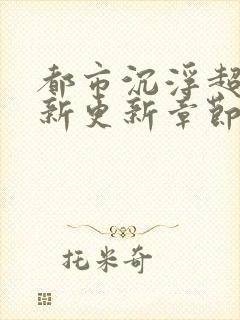 都市沉浮超
新更新章節
托米奇